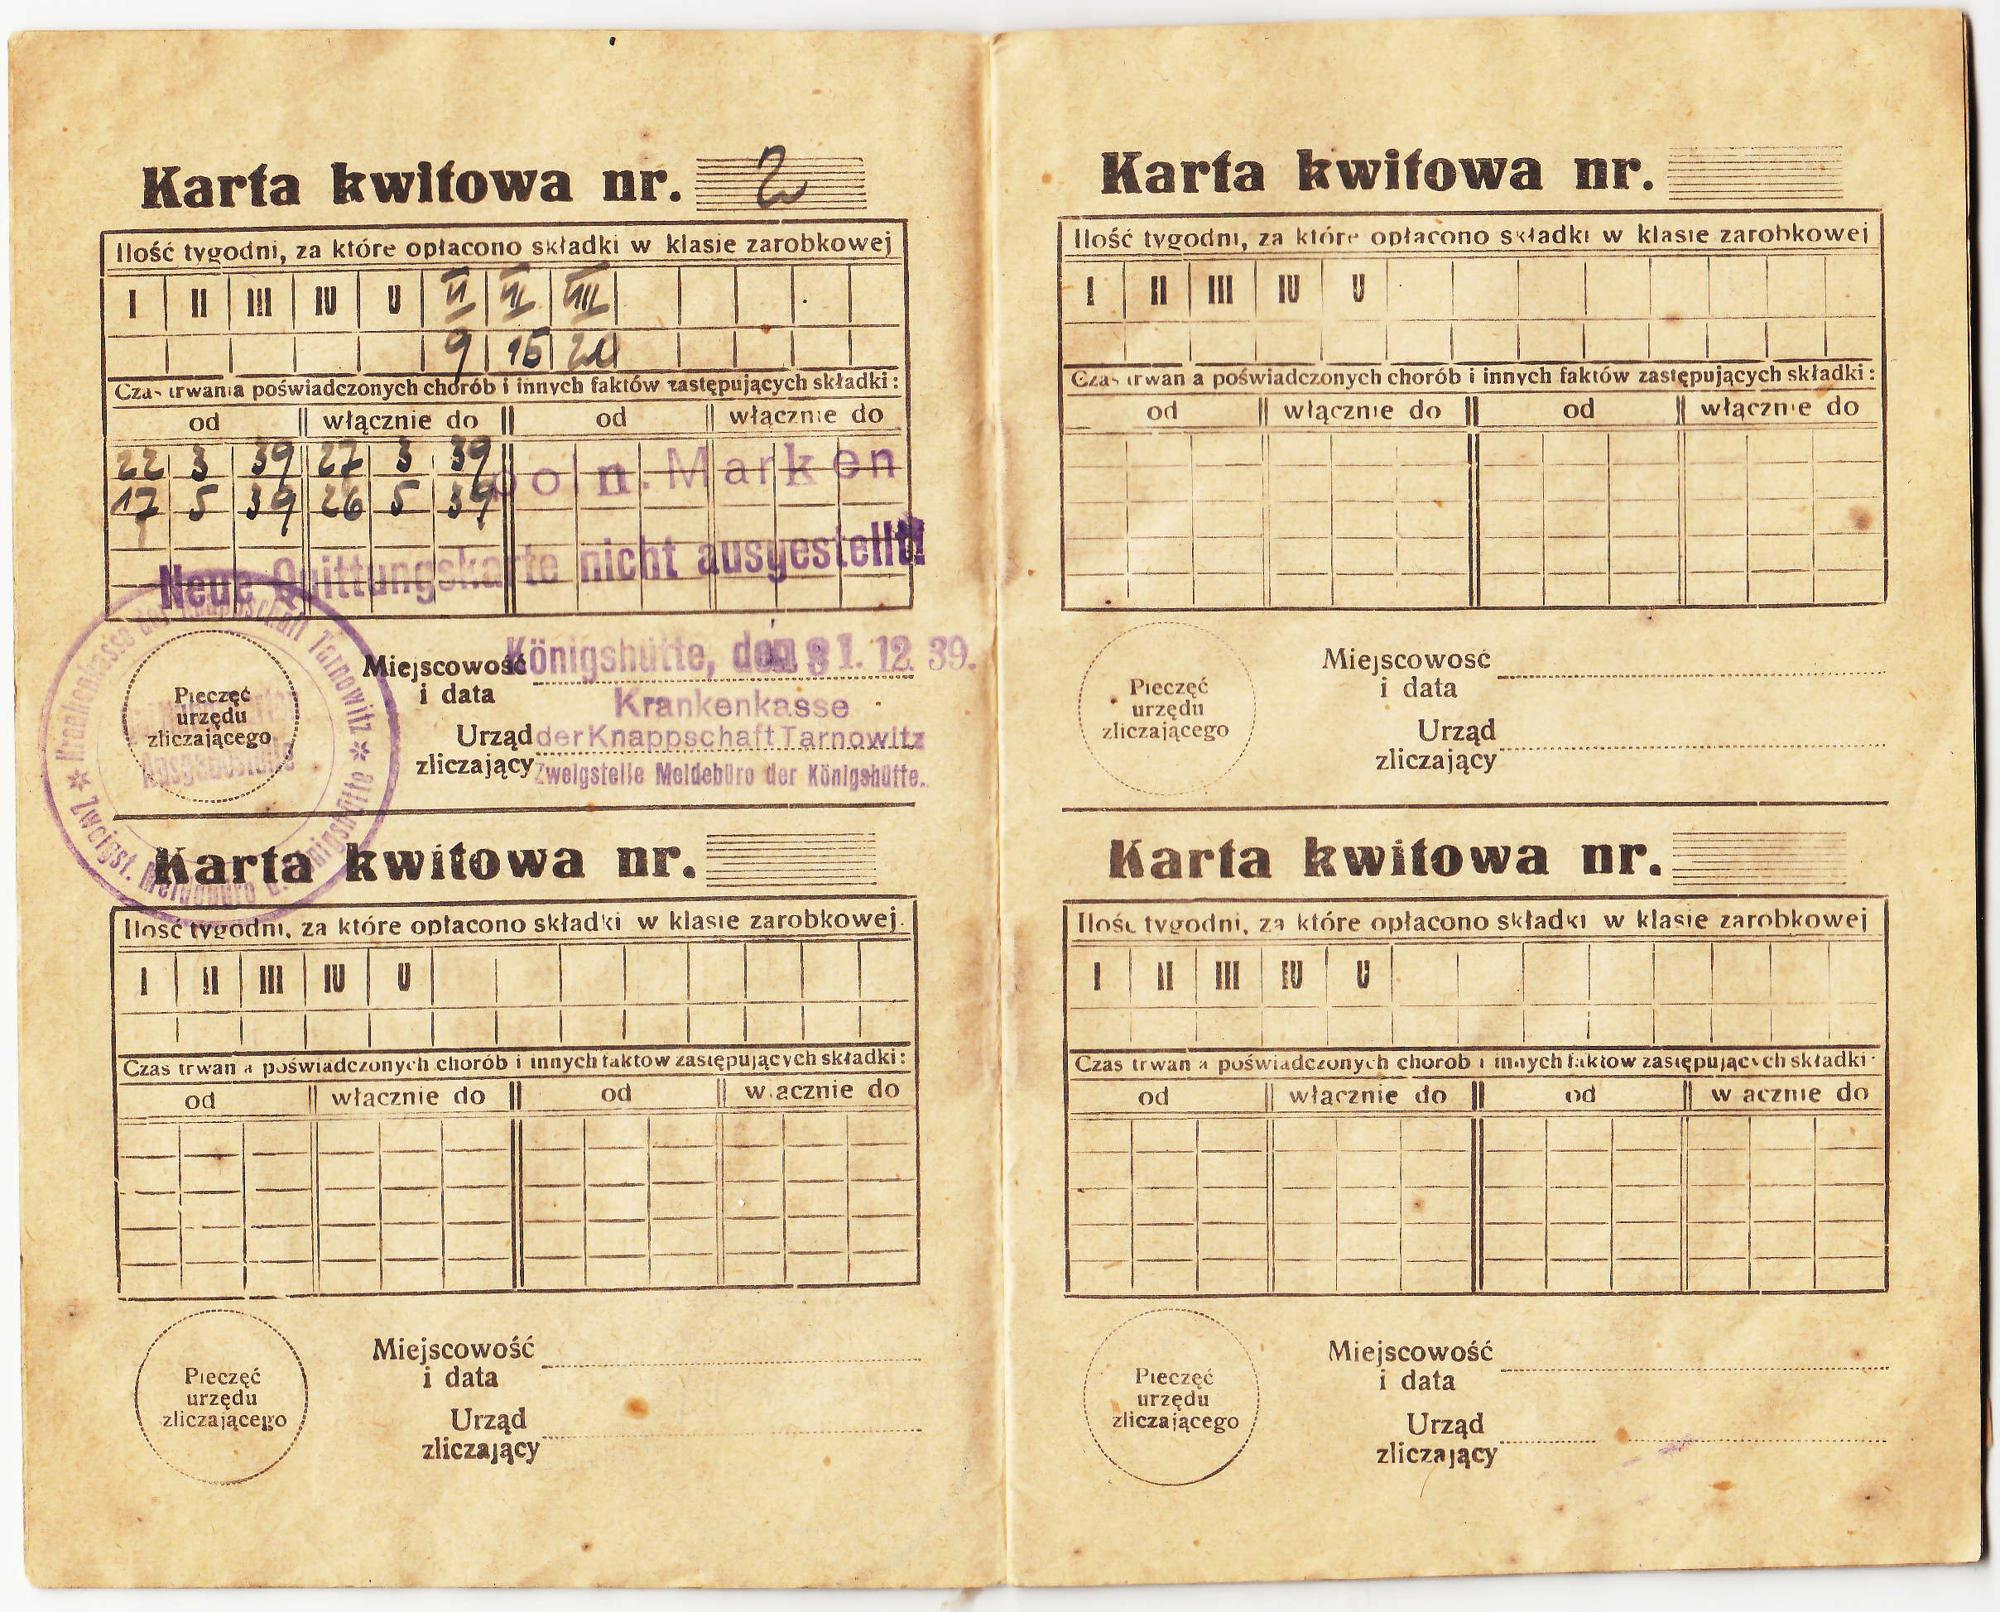 Karta kwitowa nr. 2
Ilość tygodni, za które opłacono składki w klasie zarobkowej
I II III IV V VI VII VIII
9 15 20
Czas trwania poświadczonych chorób i innych faktów zastępujących składki:
od włącznie do od włącznie do
22 3 39 27 3 39
17 5 39 26 5 39
poln. Marken
Neue Quittungskarte nicht ausgestellt!
Krankenkasse der Knappschaft Tarnowitz
Zweigst. Meldebüro d. Königshütte
Ausgabestelle
Pieczęć
urzędu
zliczającego
Miejscowość
i data
Königshütte, den 31. 12. 39.
Krankenkasse
Urząd
zliczający
der Knappschaft Tarnowitz
Zweigstelle Meldebüro der Königshütte.
Karta kwitowa nr.
Ilość tygodni, za które opłacono składki w klasie zarobkowej.
I II III IV V
Czas trwania poświadczonych chorób i innych faktów zastępujących składki:
od włącznie do od włącznie do
Pieczęć
urzędu
zliczającego
Miejscowość
i data
Urząd
zliczający
Karta kwitowa nr.
Ilość tygodni, za które opłacono składki w klasie zarobkowej
I II III IV V
Czas trwania poświadczonych chorób i innych faktów zastępujących składki:
od włącznie do od włącznie do
Pieczęć
urzędu
zliczającego
Miejscowość
i data
Urząd
zliczający
Karta kwitowa nr.
Ilość tygodni, za które opłacono składki w klasie zarobkowej
I II III IV V
Czas trwania poświadczonych chorób i innych faktów zastępujących składki:
od włącznie do od włącznie do
Pieczęć
urzędu
zliczającego
Miejscowość
i data
Urząd
zliczający